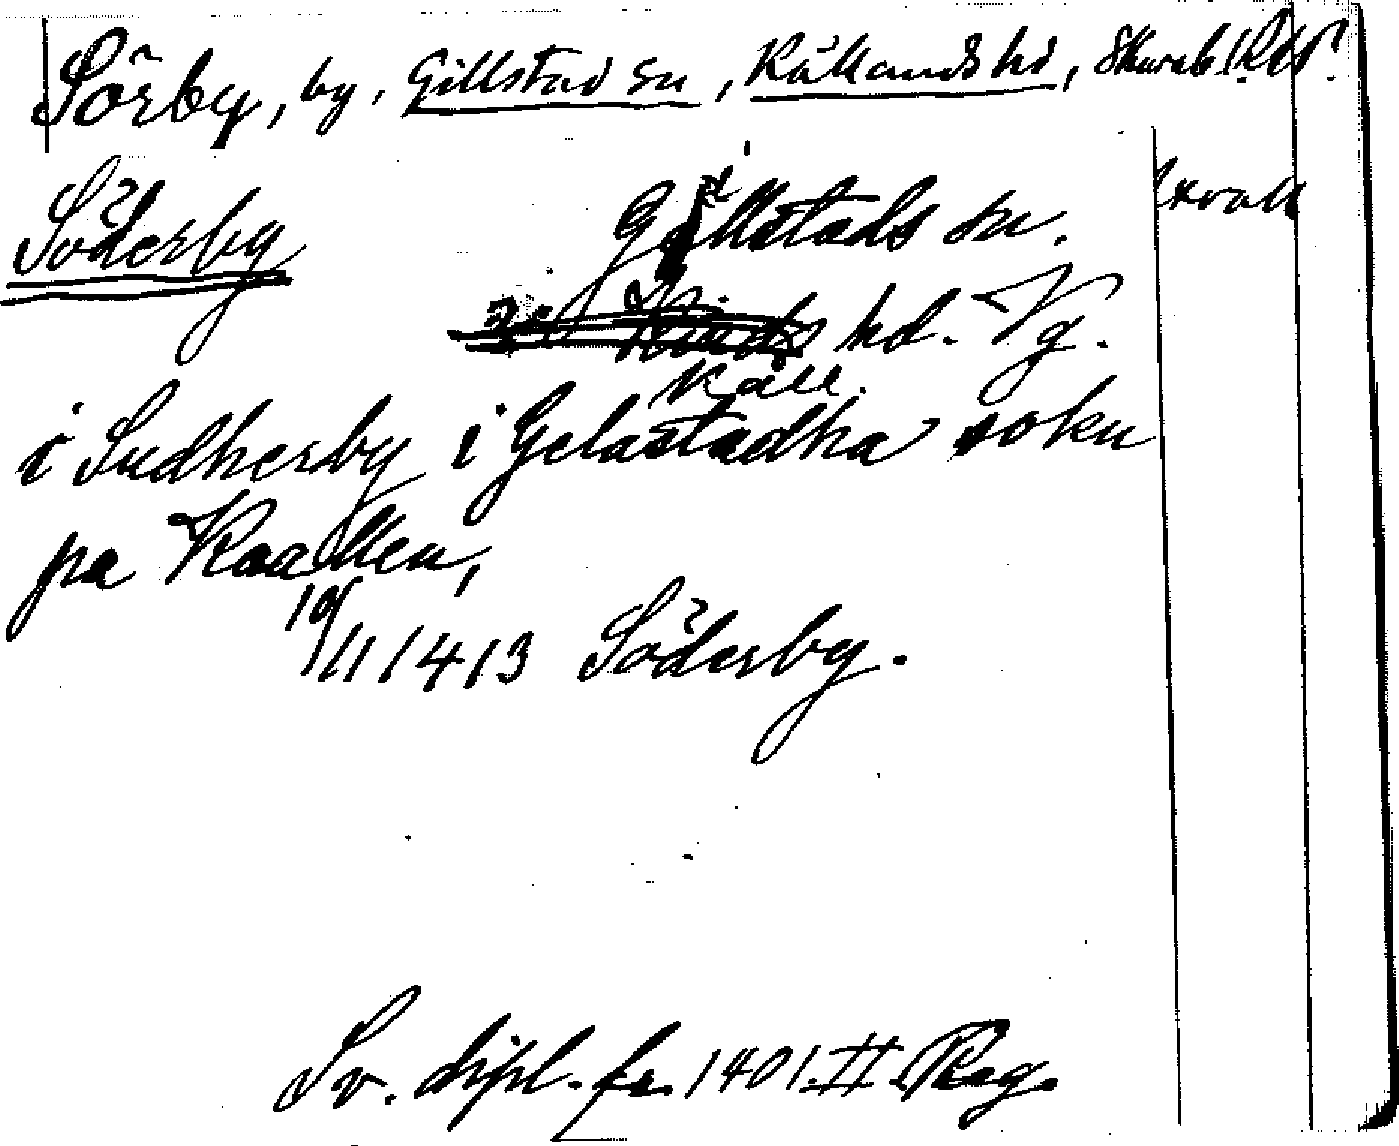 Sörby, by, Gillstad sn, Kållands hd, Skarab l.
Söderby Gillstads sn.
hd. Vg.
Kåll.
i Sudherby i Gelastadha sokn
pa Kaallen,
10/11 1413 Söderby.
Sv. dipl. fr. 1401. II. Reg.